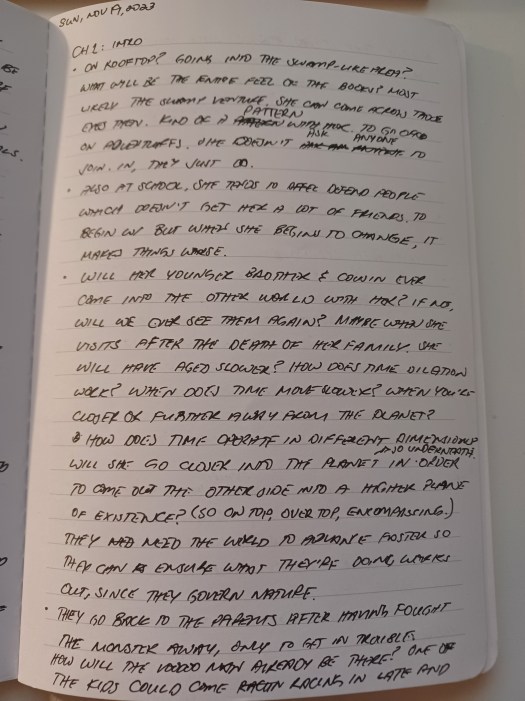 SUN, NOV 19, 2023
CH 1: INTRO
• ON ROOFTOP? GOING INTO THE SWAMP-LIKE AREA?
WHAT WILL BE THE ENTIRE FEEL OF THE BOOK? MOST
LIKELY THE SWAMP VENTURE. SHE CAN COME ACROSS THOSE
EYES THEN. KIND OF A PATTERN WITH HER. TO GO OFF
ON ADVENTURES. SHE DOESN'T ASK ANYONE TO
JOIN IN, THEY JUST DO.
• ALSO AT SCHOOL, SHE TENDS TO DEFEND PEOPLE
WHICH DOESN'T GET HER A LOT OF FRIENDS. TO
BEGIN W/ BUT WHEN SHE BEGINS TO CHANGE, IT
MAKES THINGS WORSE.
• WILL HER YOUNGER BROTHER & COUSIN EVER
COME INTO THE OTHER WORLD WITH HER? IF NO,
WILL WE EVER SEE THEM AGAIN? MAYBE WHEN SHE
VISITS AFTER THE DEATH OF HER FAMILY. SHE
WILL HAVE AGED SLOWER? HOW DOES TIME DILATION
WORK? WHEN DOES TIME MOVE SLOWER? WHEN YOU'RE
CLOSER OR FURTHER AWAY FROM THE PLANET?
HOW DOES TIME OPERATE IN DIFFERENT DIMENSIONS?
AND UNDERNEATH.
WILL SHE GO CLOSER INTO THE PLANET IN ORDER
TO COME OUT THE OTHER SIDE INTO A HIGHER PLANE
OF EXISTENCE? (SO ON TOP, OVER TOP, ENCOMPASSING.)
THEY NEED THE WORLD TO ADVANCE FASTER SO
THEY CAN ENSURE WHAT THEY'RE DOING WORKS
OUT, SINCE THEY GOVERN NATURE.
• THEY GO BACK TO THE PARENTS AFTER HAVING FOUGHT
THE MONSTER AWAY, ONLY TO GET IN TROUBLE.
HOW WILL THE VOODOO MAN ALREADY BE THERE? ONE OF
THE KIDS COULD COME RACING IN LATE AND